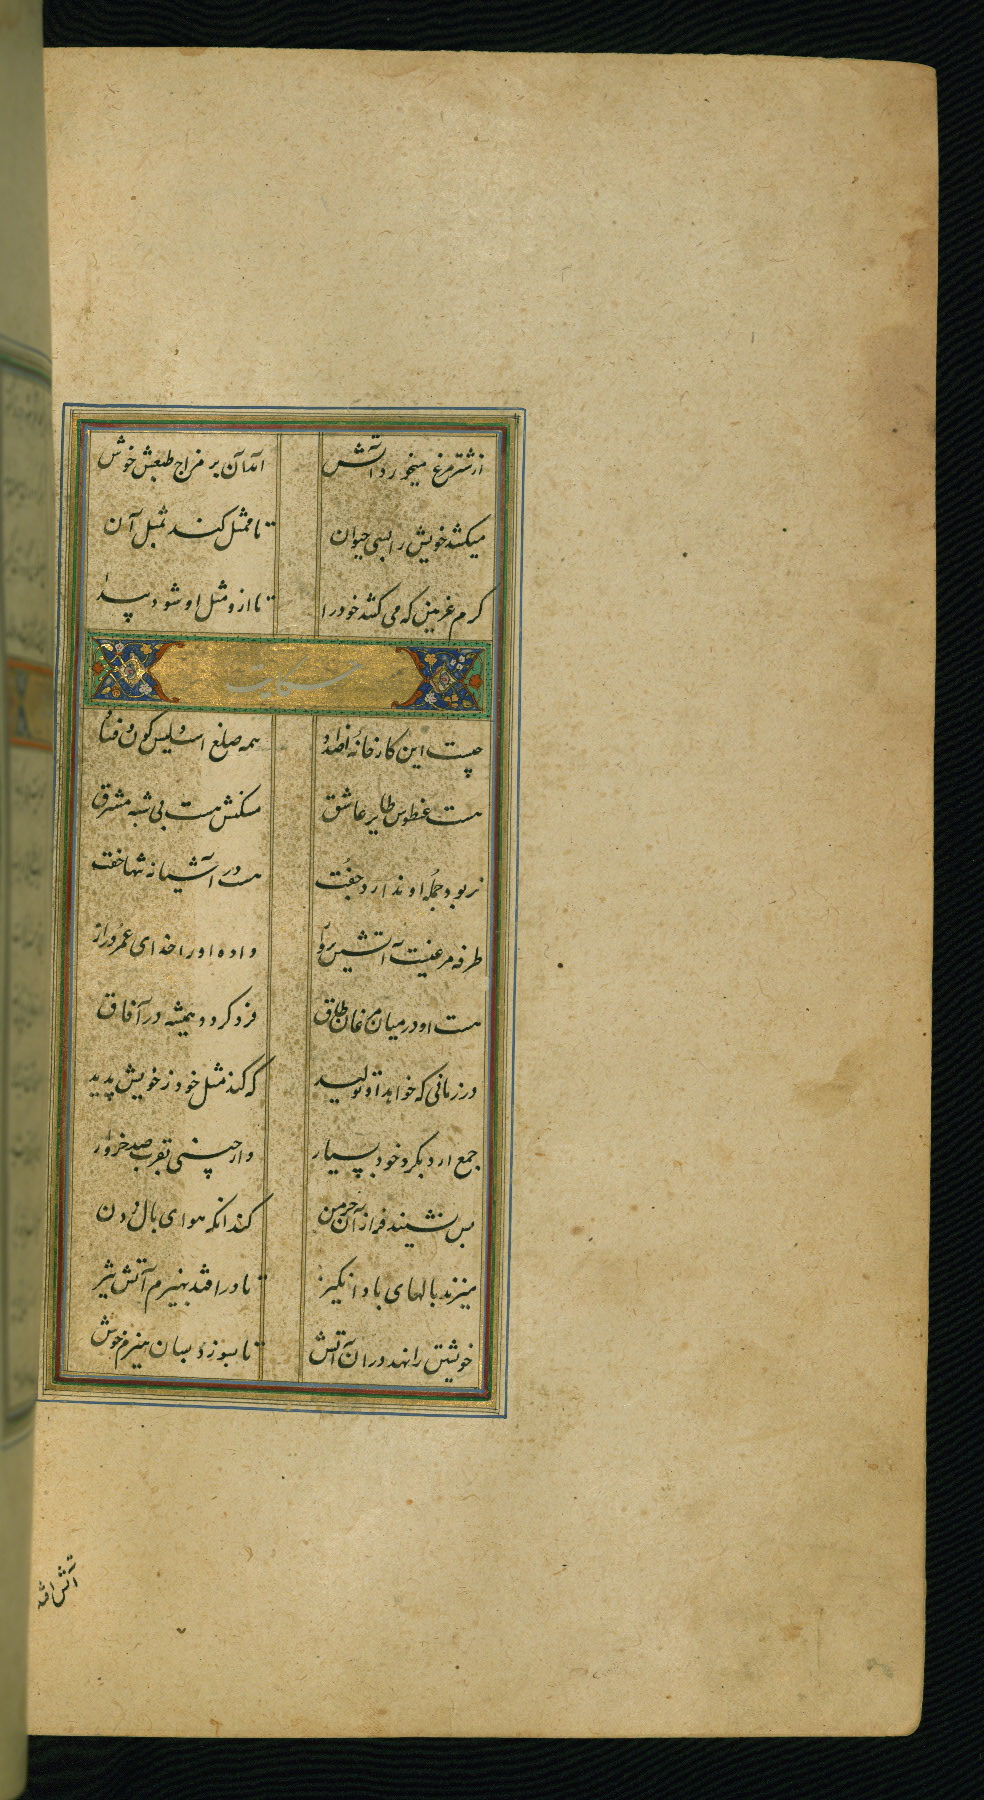 از شترمرغ میخورد آتش آمد آن بر مزاج طبعش خوش
میکشد خویش را بسی حیوان تا ممثل کند بمثل آن
کرم غرمین که می کشد خود را تا ازو مثل او شود پیدا
حکایت
چیست این کارخانه اضداد همه صلع اش لیس کون و فساد
هست غطوس طایر عاشق مسکنش هست بی شبه مشرق
نر بود جمله او ندارد جفت هست در آشیانه تنها خفت
طرفه مرغیست آتشین رو داده او را خدای عمر دراز
هست او در میان مرغان طاق فرد گردد همیشه در آفاق
در زمانی که خواهد او تولید که کند مثل خود ز خویش پدید
جمع آرد بگرد خود بسیار دارچینی بقرب صد خروار
پس نشیند فراز آن خرمن کند انکه هوای بال زدن
میزند بالهای باد انگیز تا در افتد بهیزم آتش تیز
خویشتن را نهد در ان آتش تا بسوزد بسان هیزم خوش
آتش افتد